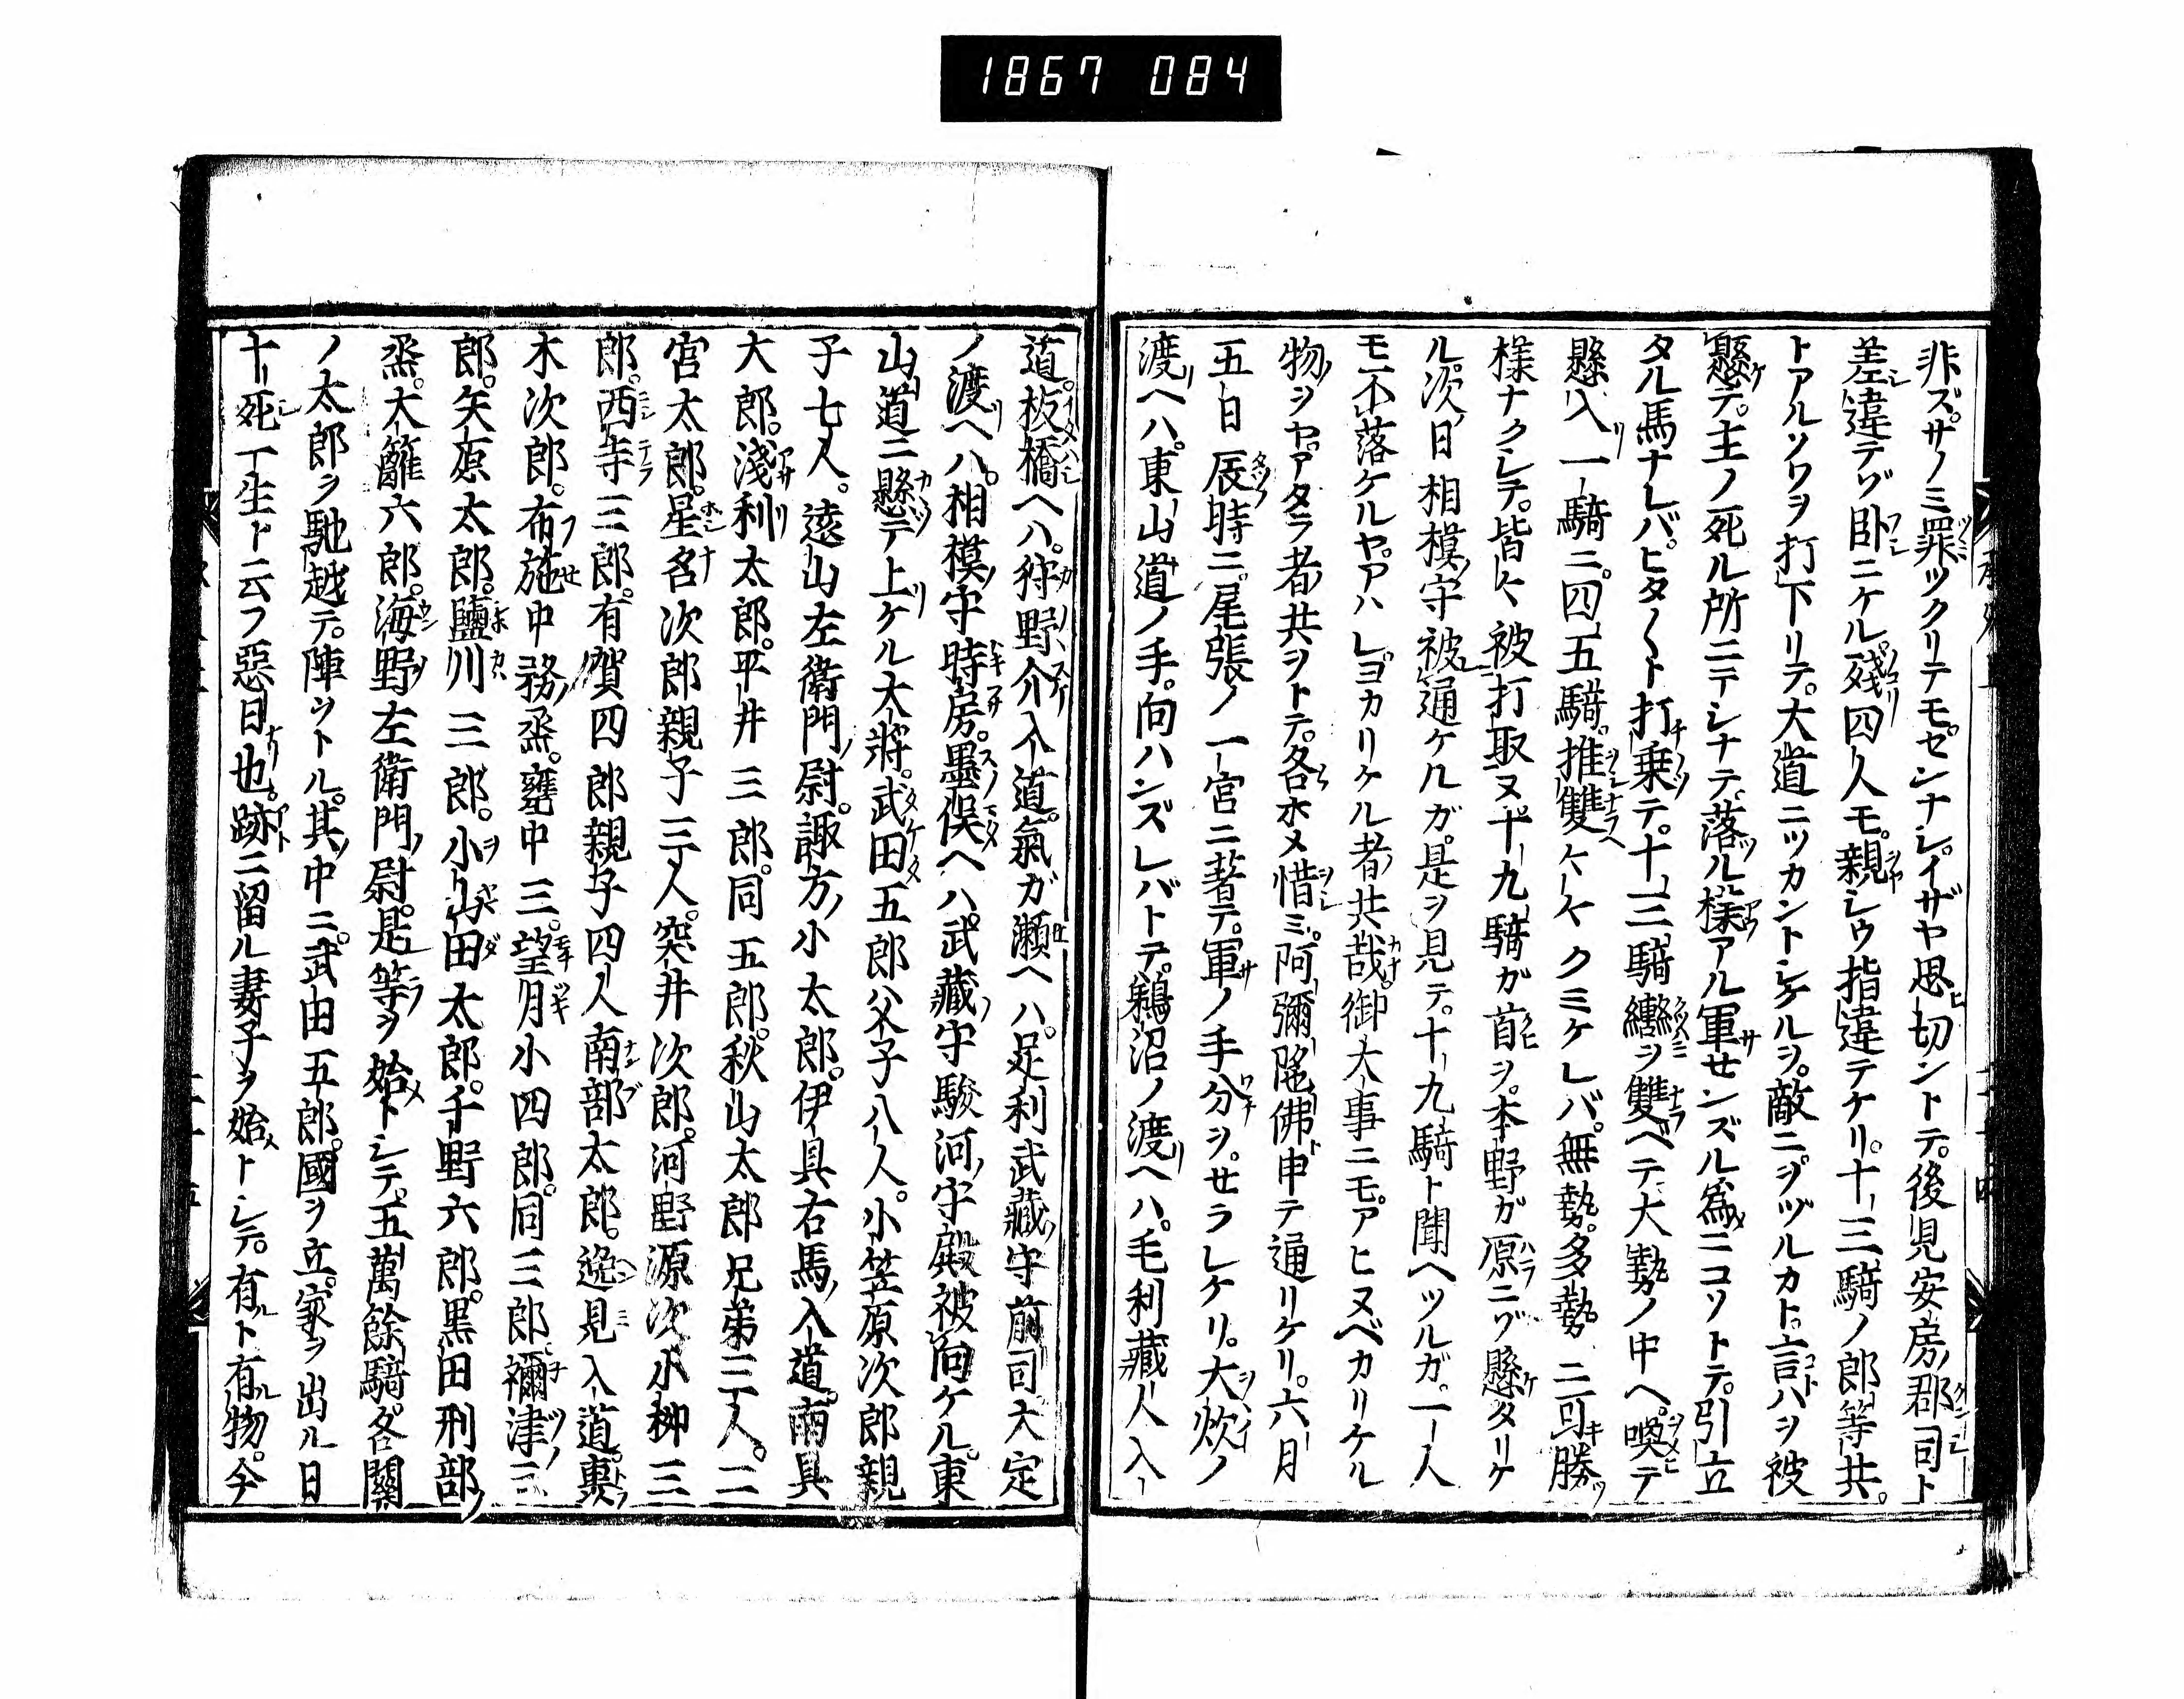 1867 084
非ズ。サノミ罪ツクリテモゼンナシ。イザヤ思切ントテ。後見安房郡司ト
差違テゾ臥ニケル。残四人モ。親シウ指違テケリ。十三騎ノ郎等共。
トアルソワヲ打下リテ。大道ニツカントシケルヲ。敵ニヲヅルカト。言ハヲ被
懸テ。主ノ死ル所ニテシナテ。落ル様アル軍センズル為ニコソトテ。引立
タル馬ナレバ。ヒタ〳〵ト打乗テ。十三騎轡ヲ雙ベテ大勢ノ中ヘ。喚テ
懸入。一騎ニ四五騎。推雙ヘケ〳〵クミケレバ。無勢。多勢ニ可勝
様ナクシテ。皆〻被打取ヌ。十九騎ガ首ヲ。本野ガ原ニゾ懸タリケ
ル。次日相模守被通ケルガ。是ヲ見テ。十九騎ト聞ヘツルガ。一人
モ不落ケルヤ。アハレヨカリケル者共哉。御大事ニモ。アヒヌベカリケル
物ヲヤ。アタラ者共ヲトテ。各ホメ惜ミ。阿彌陀佛申テ通リケリ。六月
五日辰時ニ。尾張ノ一宮ニ著テ。軍ノ手分ヲ。セラレケリ。大炊ノ
渡ヘハ。東山道ノ手。向ハンズレバトテ。鵜沼ノ渡ヘハ。毛利藏人入
道。板橋ヘハ。狩野介入道。氣ガ瀬ヘハ。足利武藏守前司。大定
ノ渡ヘハ。相模守時房。墨俣ヘハ。武藏守駿河守殿被向ケル。東
山道ニ懸テ上ケル大將。武田五郎父子八人。小笠原次郎親
子七人。遠山左衛門尉。諏方小太郎。伊具右馬入道。南具
大郎。淺利太郎。平井三郎。同五郎。秋山太郎兄弟三人。二
宮太郎。星名次郎親子三人。突井次郎。河野源次。小柳三
郎。西寺三郎。有賀四郎親子四人。南部太郎。逸見入道。裏
木次郎。布施中務烝。甕中三。望月小四郎。同三郎。禰津三
郎。矢原太郎。鹽川三郎。小山田太郎。千野六郎。黒田刑部
烝。大籬六郎。海野左衛門尉。是等ヲ始トシテ。五萬餘騎。各關
ノ太郎ヲ馳越テ。陣ヲトル。其中ニ武田五郎。國ヲ立。家ヲ出ル日
十死一生ト云フ惡日也。跡ニ留ル妻子ヲ始トシテ。有ト有物。今